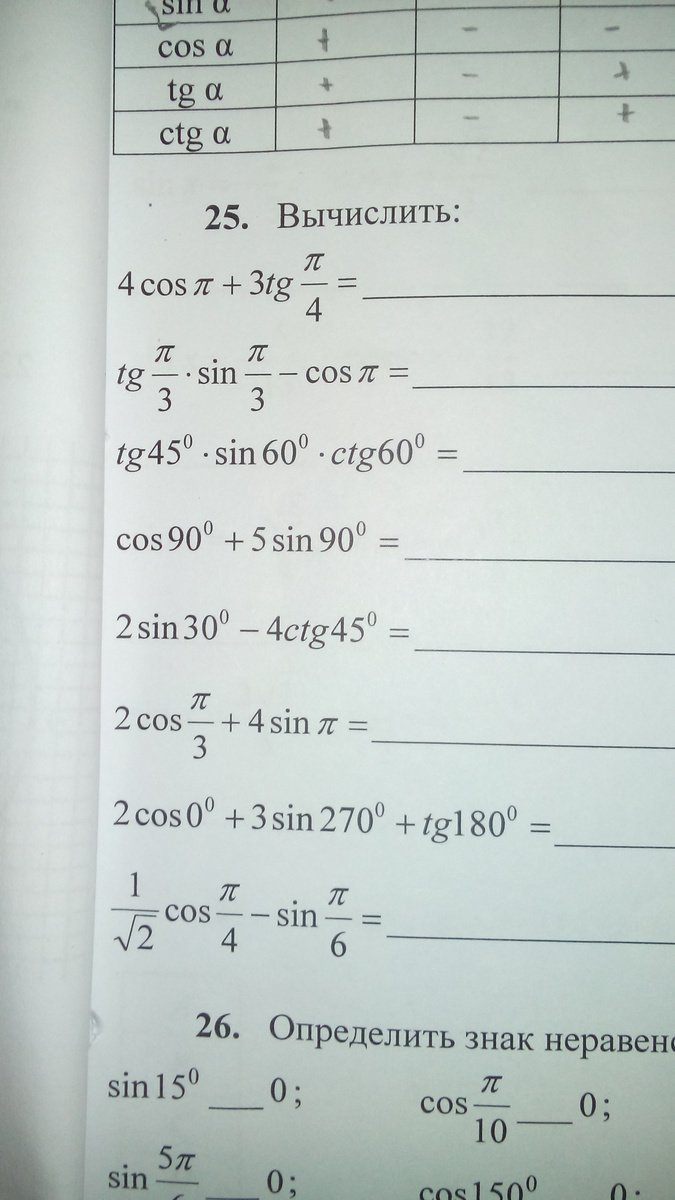 sin α
cos α + − −
tg α + − +
ctg α + − +
25. Вычислить:
4 cos π + 3tg π/4 =
tg π/3 · sin π/3 − cos π =
tg45⁰ · sin 60⁰ · ctg60⁰ =
cos 90⁰ + 5 sin 90⁰ =
2 sin 30⁰ − 4ctg45⁰ =
2 cos π/3 + 4 sin π =
2 cos 0⁰ + 3 sin 270⁰ + tg180⁰ =
1/√2 cos π/4 − sin π/6 =
26. Определить знак
sin 15⁰ ___ 0; cos π/10 ___ 0;
sin 5π/6 ___ 0; cos 150⁰ 0;